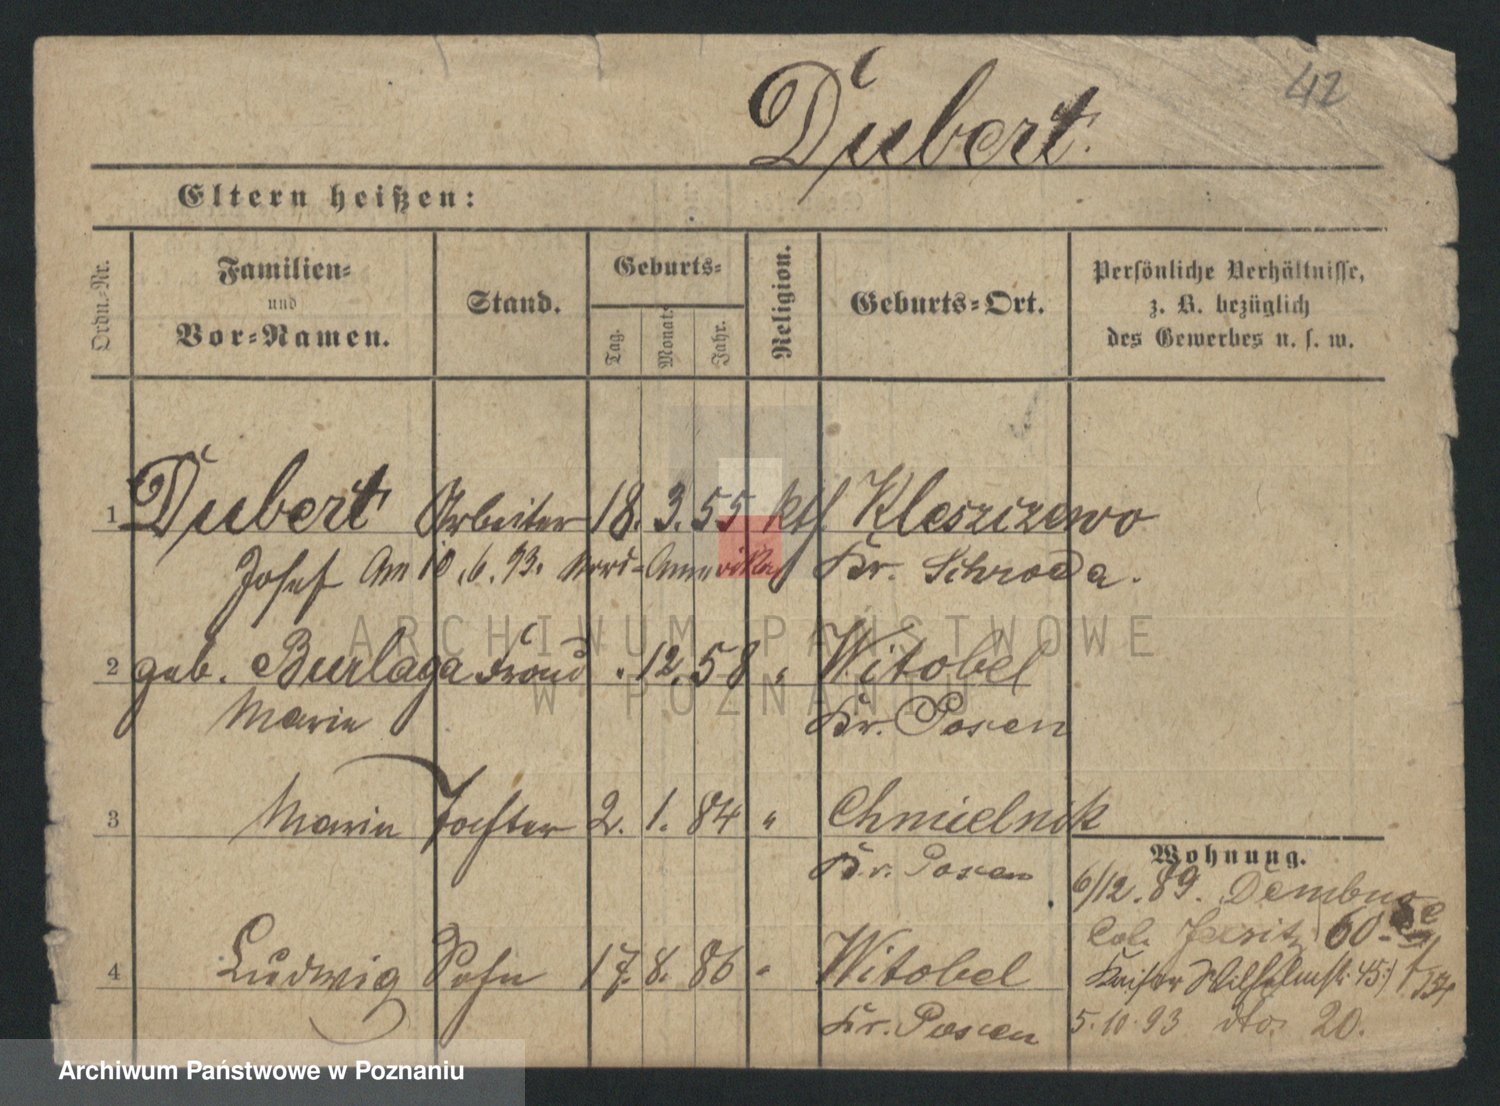 42
Dubert.
Eltern heißen:
Ordn.-Nr.
Familien-
und
Vor-Namen.
Stand.
Geburts-
Tag.
Monat.
Jahr.
Religion.
Geburts-Ort.
Persönliche Verhältnisse,
z. B. bezüglich
des Gewerbes u. s. w.
1 Dubert Arbeiter 18. 3. 55 ktl. Kleszczewo
Josef Am 10.6.93. Nord-Amerika Kr. Schroda.
ARCHIWUM PAŃSTWOWE
2 geb. Burlaga Frau . 12. 58 " Witobel
W POZNANIU
Marie Kr. Posen
3 Marie Tochter 2. 1. 84 " Chmielnik
Kr. Posen
Wohnung.
6/12. 89. Dembsen
Col. 60.
4 Ludwig Sohn 17. 8. 86 " Witobel
Kaiser Wilhelmstr. 45
Kr. Posen
5.10.93 dto. 20.
Archiwum Państwowe w Poznaniu